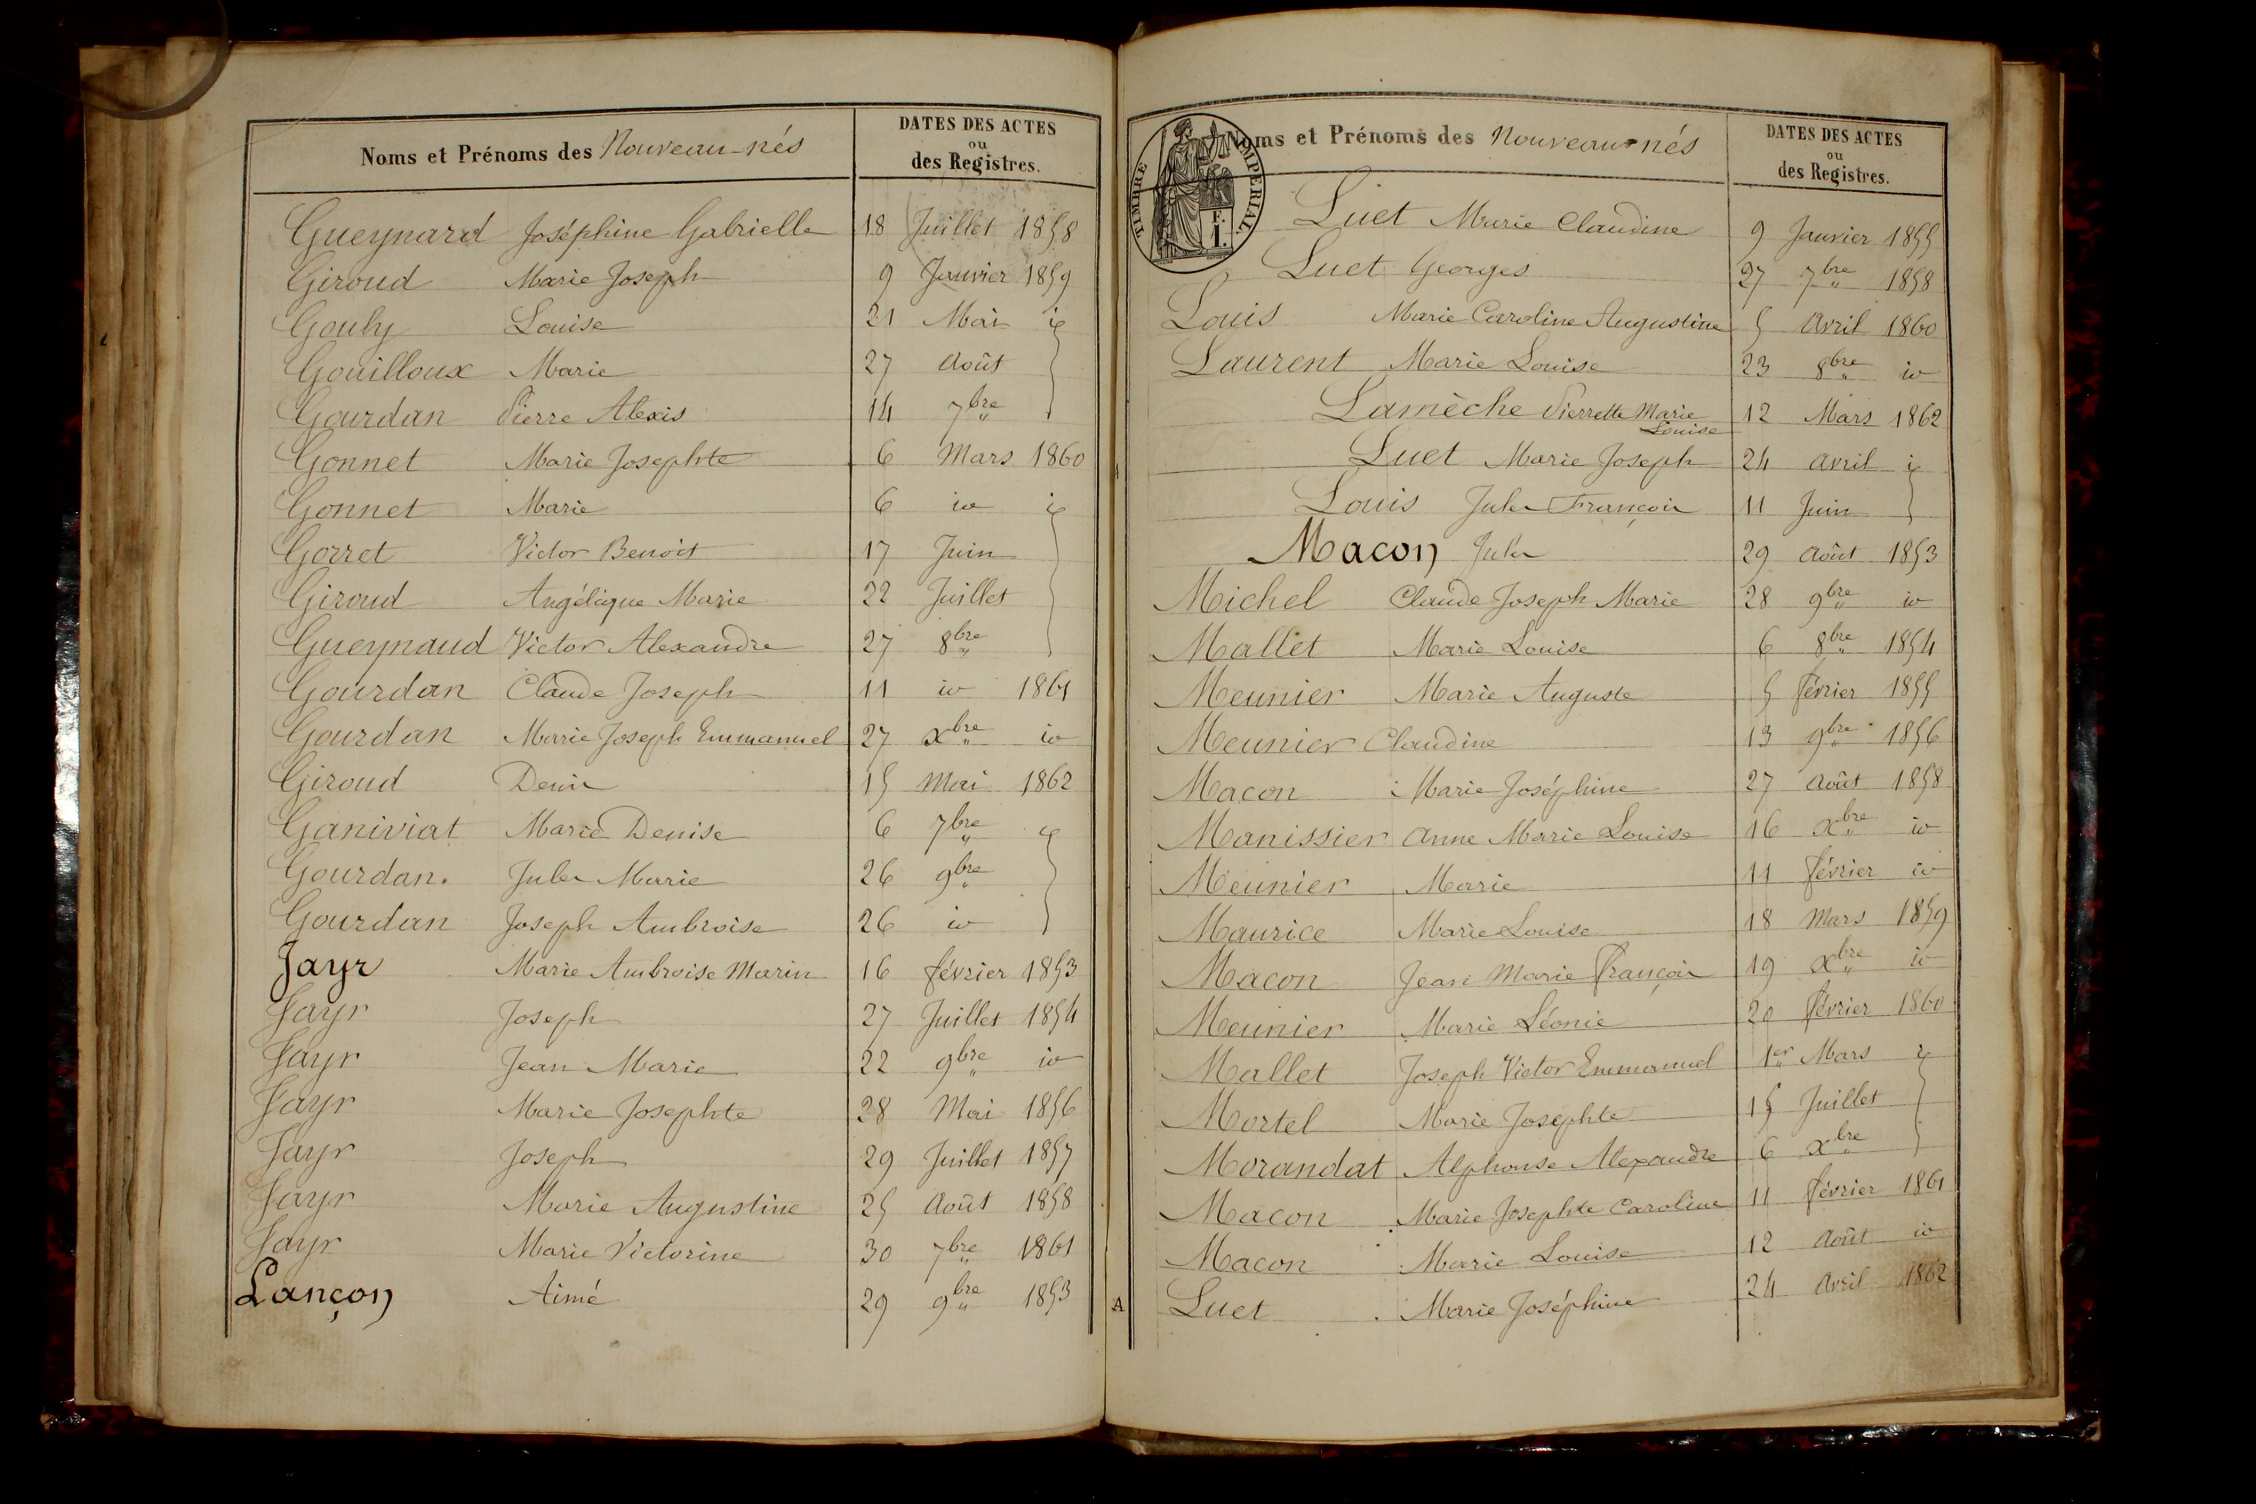 Noms et Prénoms des Nouveau-nés
DATES DES ACTES
ou
des Registres.
Gueynard Joséphine Gabrielle 18 Juillet 1858
Giroud Marie Joseph 9 Janvier 1859
Gouly Louise 21 Mai id
Gouilloux Marie 27 Août
Gourdan Pierre Alexis 14 7bre
Gonnet Marie Josephte 6 Mars 1860
Gonnet Marie 6 id id
Gorret Victor Benoit 17 Juin
Giroud Angélique Marie 22 Juillet
Gueynaud Victor Alexandre 27 8bre
Gourdan Claude Joseph 11 id 1861
Gourdan Marie Joseph Emmanuel 27 xbre id
Giroud Denis 15 Mai 1862
Ganiviat Marie Denise 6 7bre id
Gourdan. Jules Marie 26 9bre
Gourdan Joseph Ambroise 26 id
Jayr Marie Ambroise Marin 16 février 1853
Jayr Joseph 27 Juillet 1854
Jayr Jean Marie 22 9bre id
Jayr Marie Josephte 28 Mai 1856
Jayr Joseph 29 Juillet 1857
Jayr Marie Augustine 25 Août 1858
Jayr Marie Victorine 30 7bre 1861
Lançon Aimé 29 9bre 1853
TIMBRE IMPERIAL.
F.
1.
Noms et Prénoms des Nouveau-nés
DATES DES ACTES
ou
des Registres.
Luet Marie Claudine 9 Janvier 1855
Luet Georges 27 7bre 1858
Louis Marie Caroline Augustine 5 Avril 1860
Laurent Marie Louise 23 8bre id
Lamèche Pierrette Marie 12 Mars 1862
Louise
Luet Marie Joseph 24 Avril id
Louis Jules François 11 Juin
Macon Jules 29 Août 1853
Michel Claude Joseph Marie 28 9bre id
Mallet Marie Louise 6 8bre 1854
Meunier Marie Auguste 5 février 1855
Meunier Claudine 13 9bre 1856
Macon Marie Joséphine 27 Août 1858
Manissier Anne Marie Louise 16 xbre id
Meunier Marie 11 février id
Maurice Marie Louise 18 Mars 1859
Macon Jean Marie François 19 xbre id
Meunier Marie Léonie 20 février 1860
Mallet Joseph Victor Emmanuel 1er Mars id
Mortel Marie Josephte 15 Juillet
Morandat Alphonse Alexandre 6 xbre
Macon Marie Josephte Caroline 11 février 1861
Macon Marie Louise 12 Août id
A
Luet Marie Joséphine 24 Avril 1862